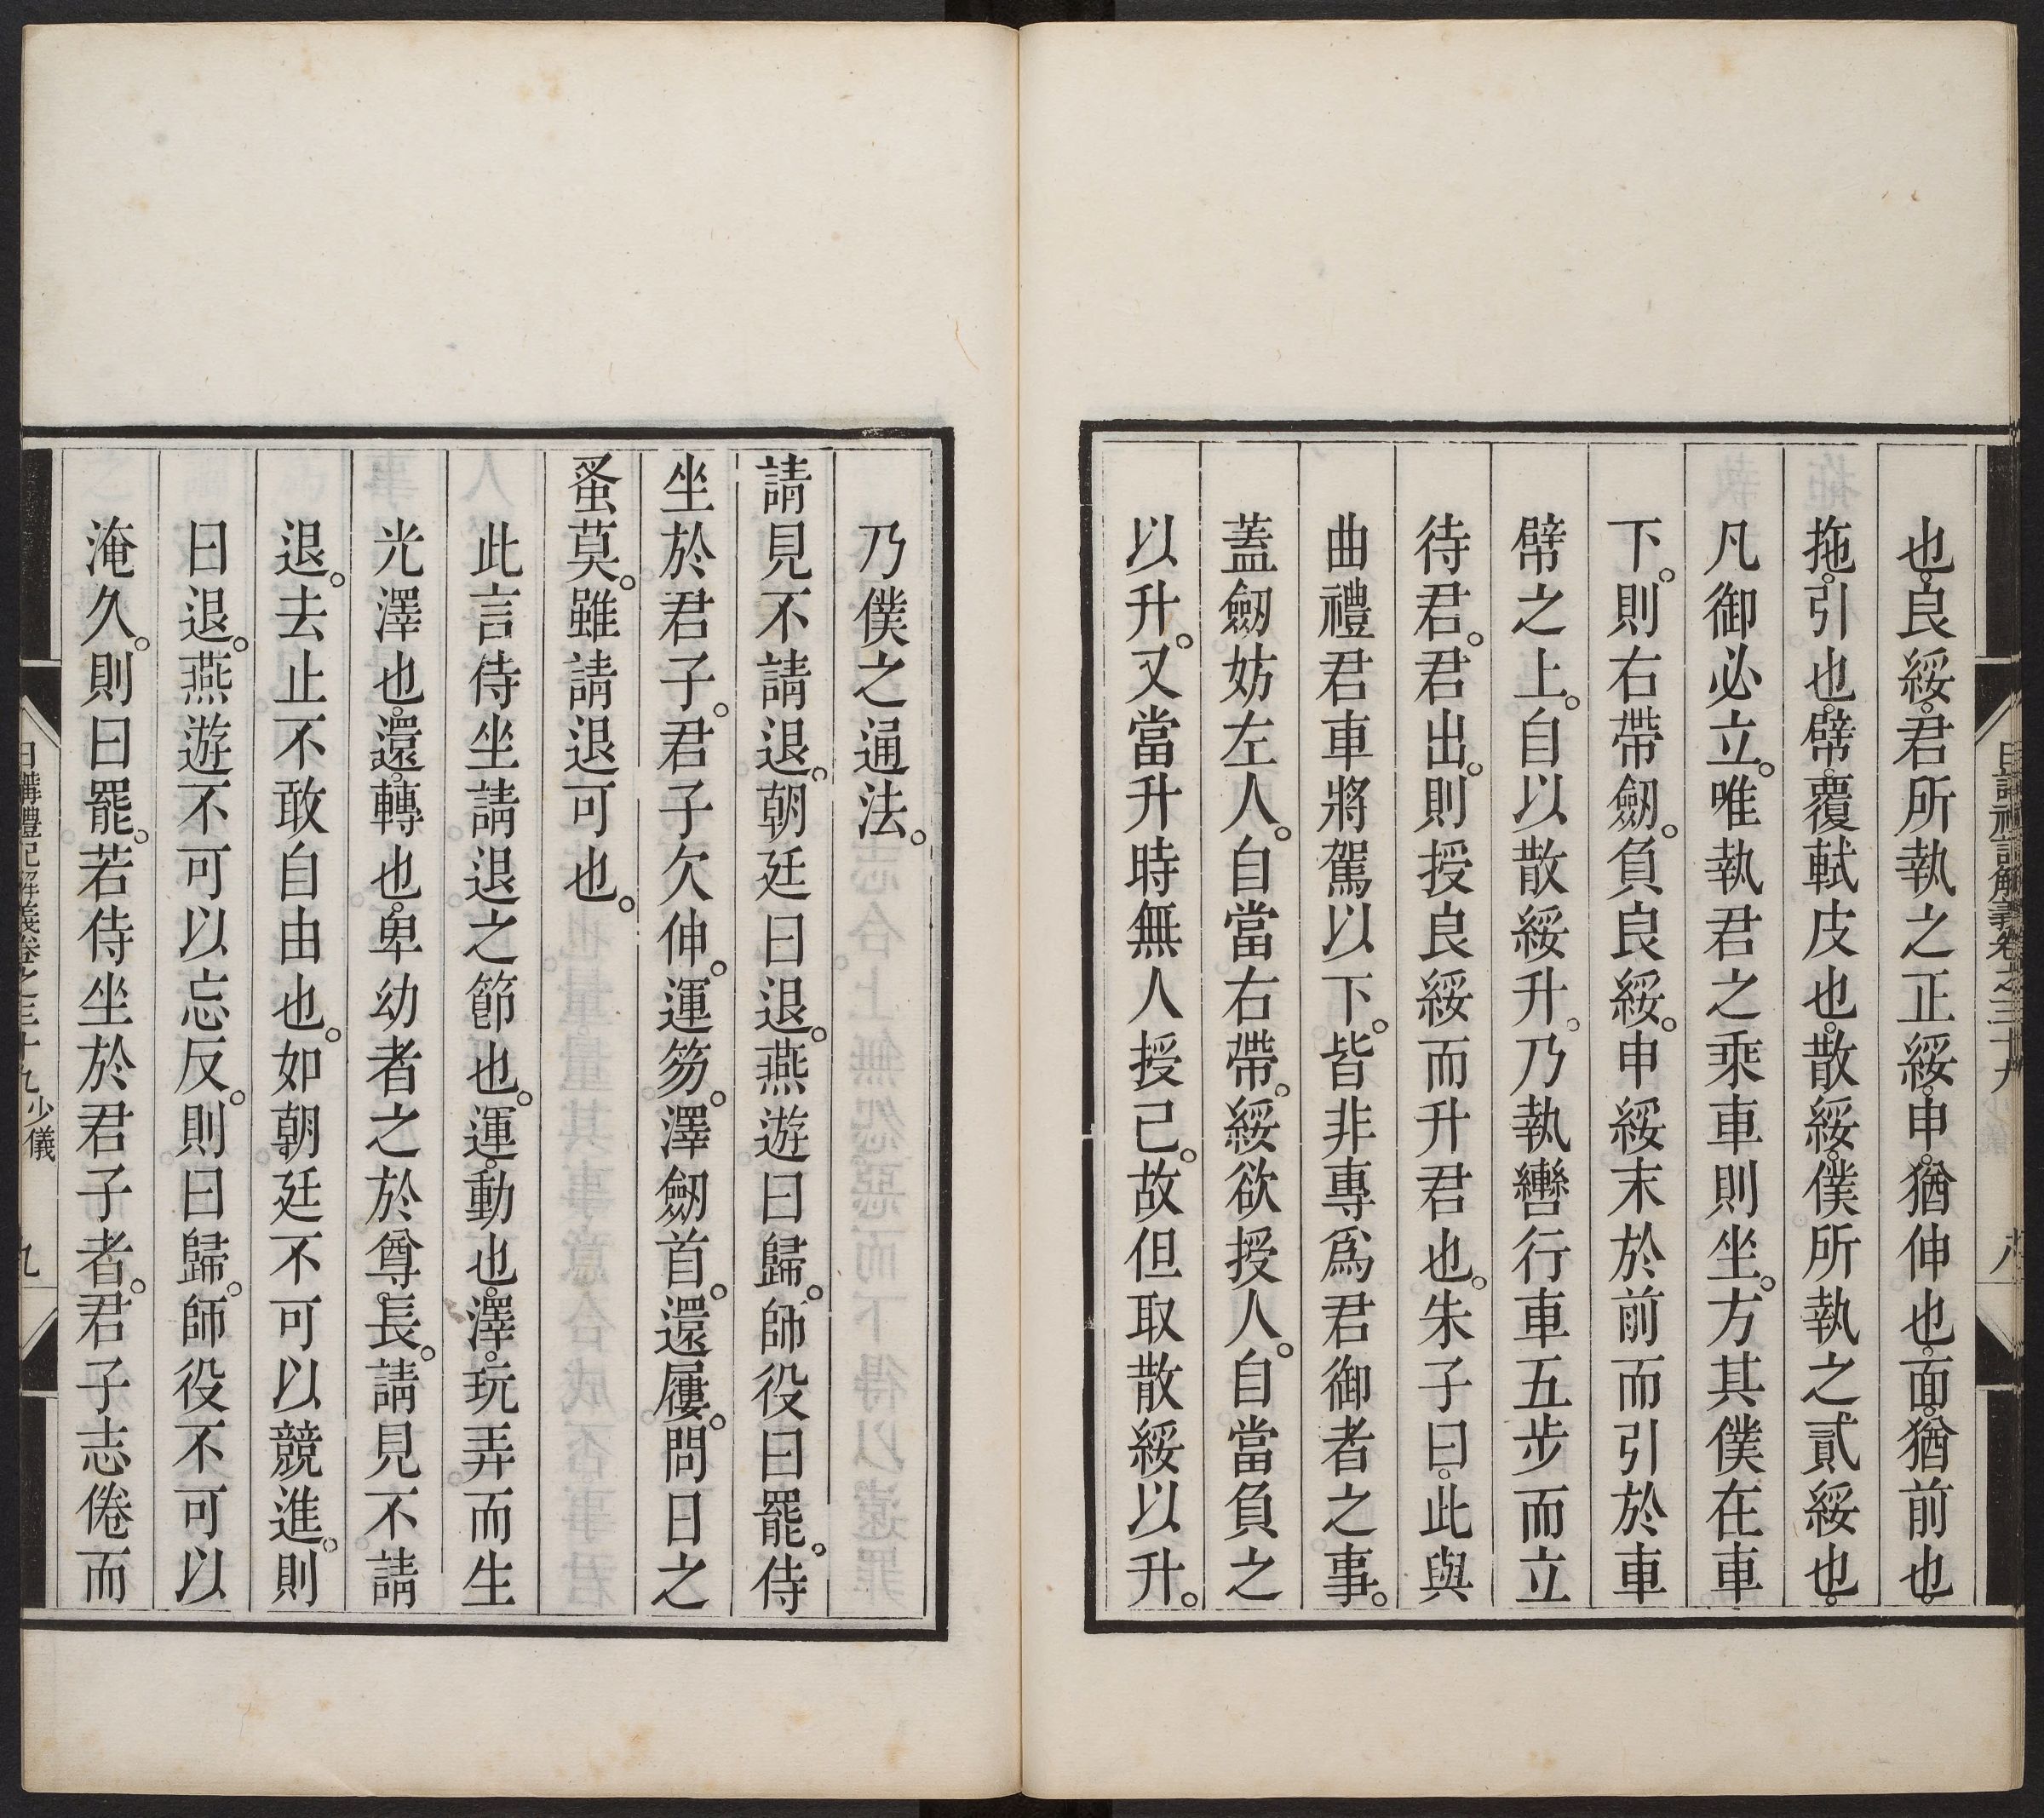 也。良綏。君所執之正綏。申。猶伸也。面。猶前也。
拖。引也。幦。覆軾皮也。散綏。僕所執之貳綏也。
凡御必立。唯執君之乘車則坐。方其僕在車
下。則右帶劒。負良綏。申綏末於前而引於車
幦之上。自以散綏升。乃執轡行車五步而立
待君。君出。則授良綏而升君也。朱子曰。此與
曲禮君車將駕以下。皆非專爲君御者之事。
蓋劒妨左人。自當右帶。綏欲授人。自當負之
以升。又當升時無人授己。故但取散綏以升。
乃僕之通法。
請見不請退。朝廷曰退。燕遊曰歸。師役曰罷。侍
坐於君子。君子欠伸。運笏。澤劒首。還屨。問日之
蚤莫。雖請退可也。
此言侍坐請退之節也。運。動也。澤。玩弄而生
光澤也。還。轉也。卑幼者之於尊長。請見不請
退。去止不敢自由也。如朝廷不可以競進。則
曰退。燕遊不可以忘反。則曰歸。師役不可以
淹久。則曰罷。若侍坐於君子者。君子志倦而
日講禮記解義卷之三十九 少儀 九